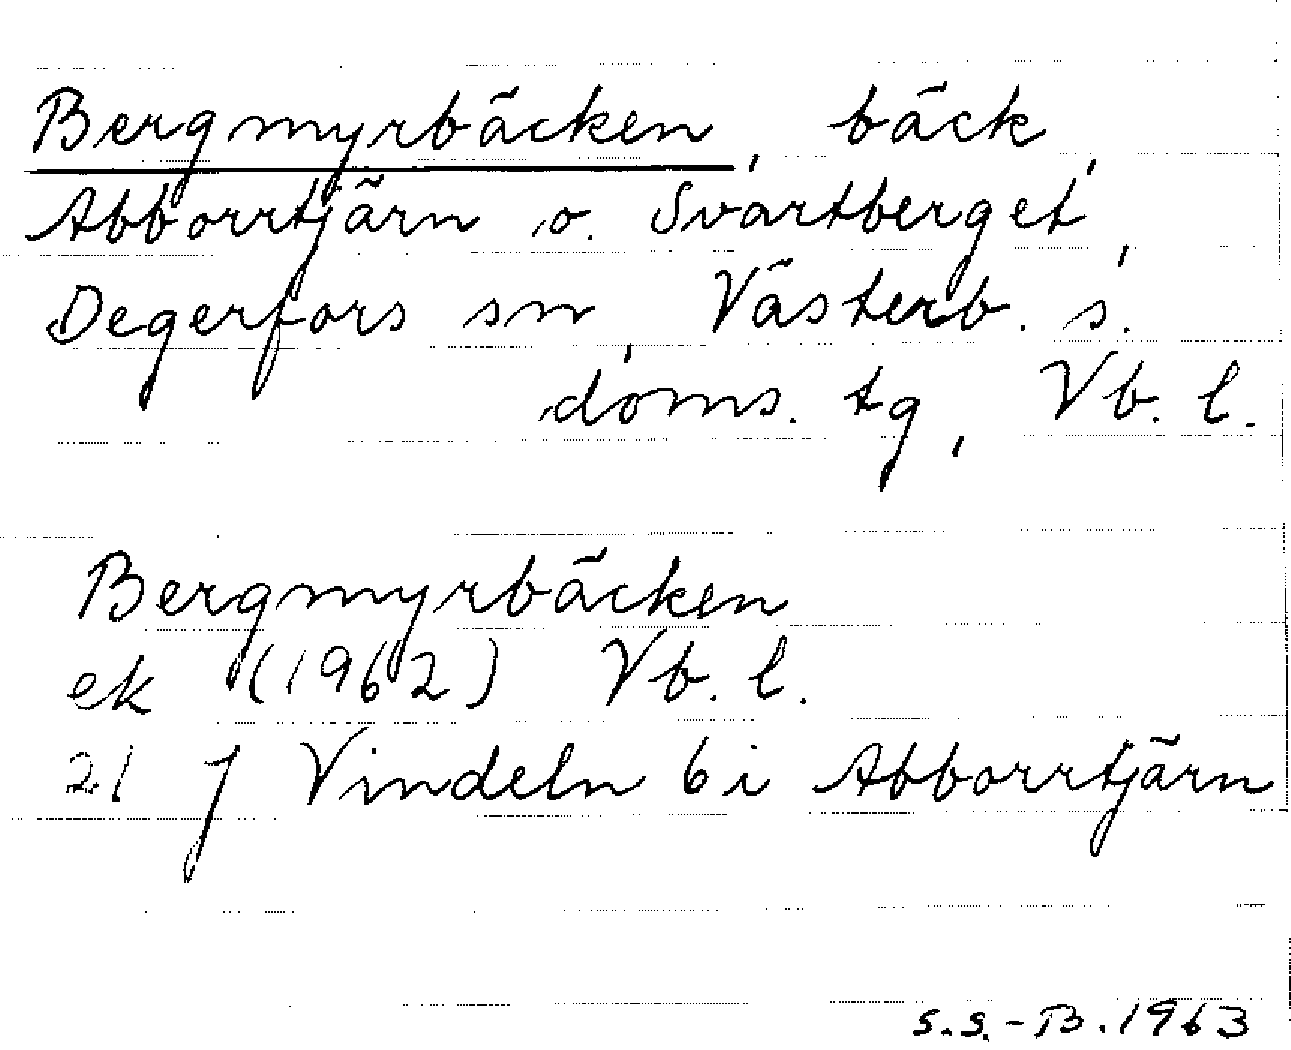 Bergmyrbäcken, bäck,
Abborrtjärn o. Svartberget,
Degerfors sn, Västerb. s.
doms. tg, Vb. l.
Bergmyrbäcken
ek (1962) Vb. l.
21 J Vindeln 6 i Abborrtjärn
S.S.-B. 1963